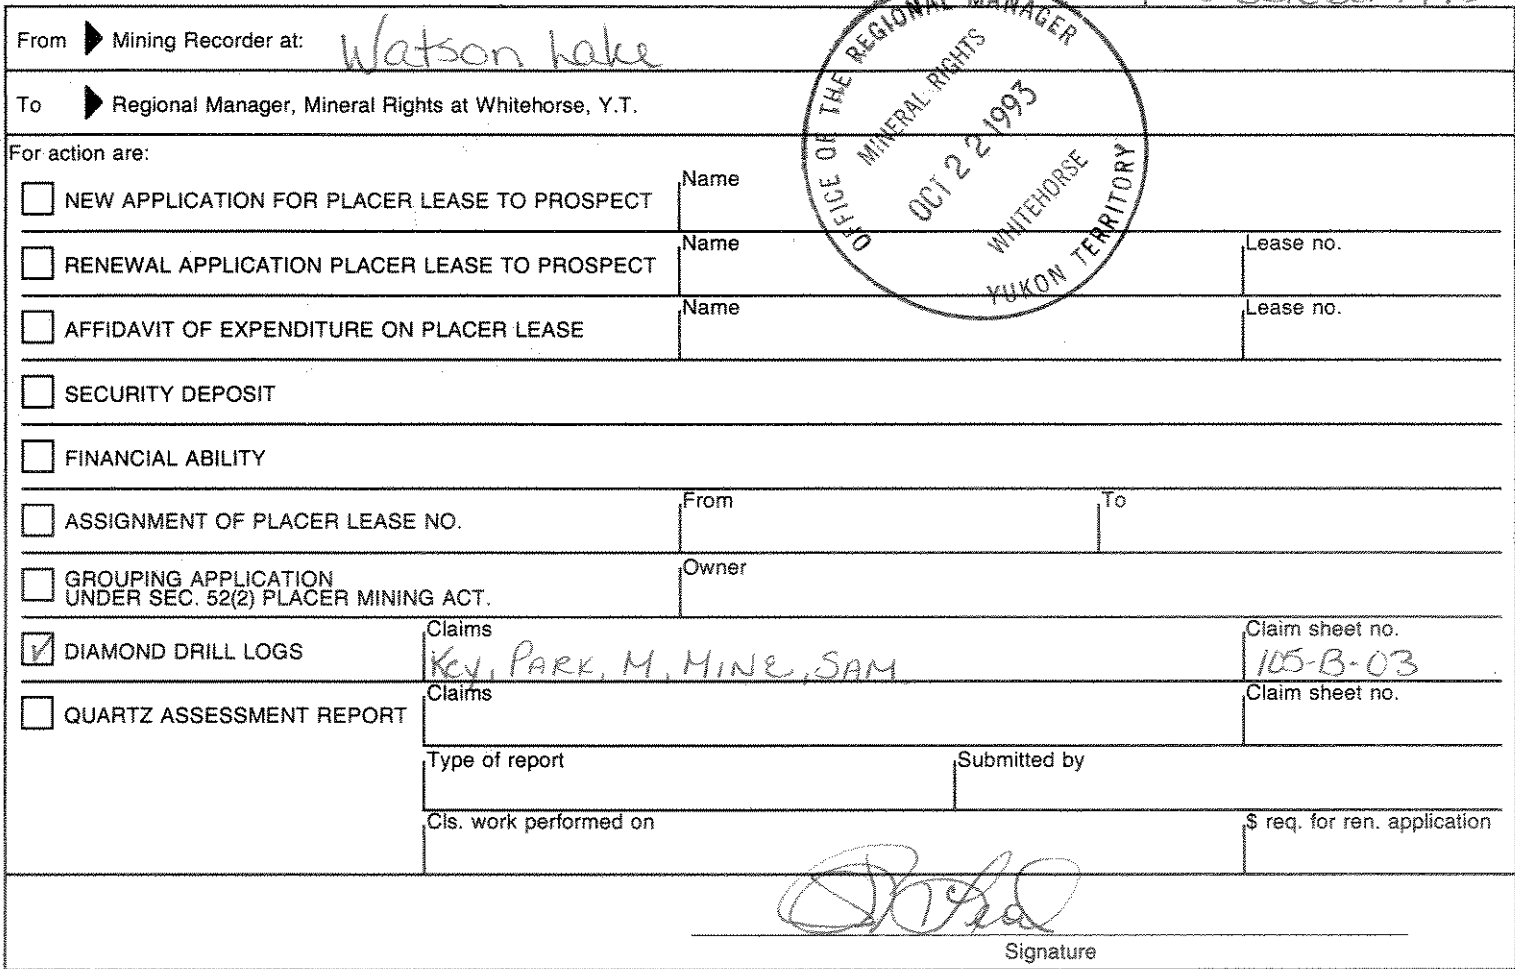 From Mining Recorder at: Watson Lake
To Regional Manager, Mineral Rights at Whitehorse, Y.T.
OFFICE OF THE REGIONAL MANAGER
MINERAL RIGHTS
OCT 22 1993
WHITEHORSE
YUKON TERRITORY
For action are:
NEW APPLICATION FOR PLACER LEASE TO PROSPECT Name
RENEWAL APPLICATION PLACER LEASE TO PROSPECT Name Lease no.
AFFIDAVIT OF EXPENDITURE ON PLACER LEASE Name Lease no.
SECURITY DEPOSIT
FINANCIAL ABILITY
ASSIGNMENT OF PLACER LEASE NO. From To
GROUPING APPLICATION Owner
UNDER SEC. 52(2) PLACER MINING ACT.
Claims Claim sheet no.
DIAMOND DRILL LOGS Key, PARK, M, MINE, SAM 105-B-03
Claims Claim sheet no.
QUARTZ ASSESSMENT REPORT
Type of report Submitted by
Cls. work performed on $ req. for ren. application
Signature